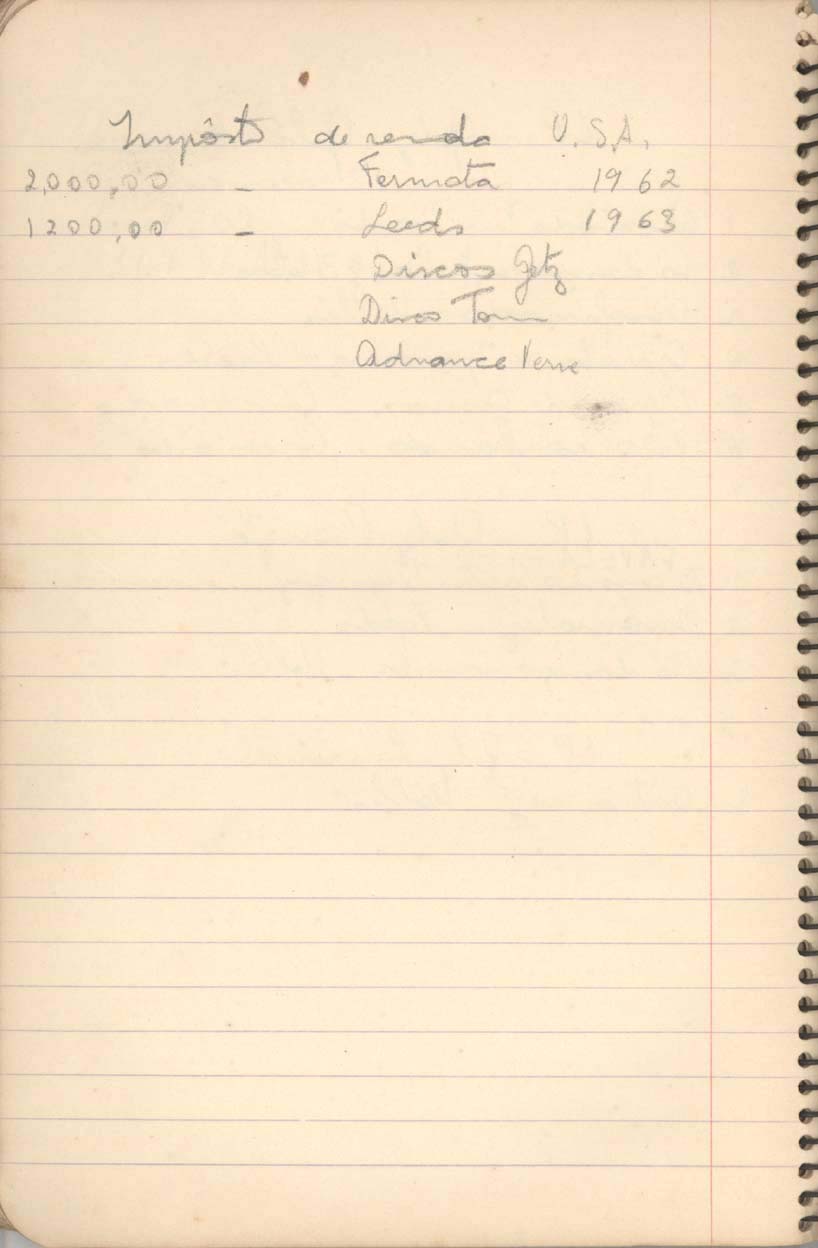 Impôsto de renda U.S.A.
2,000,00 - Fermata 1962
1200,00 - Leeds 1963
Discos Getz
Discos Tom
Advance Verve